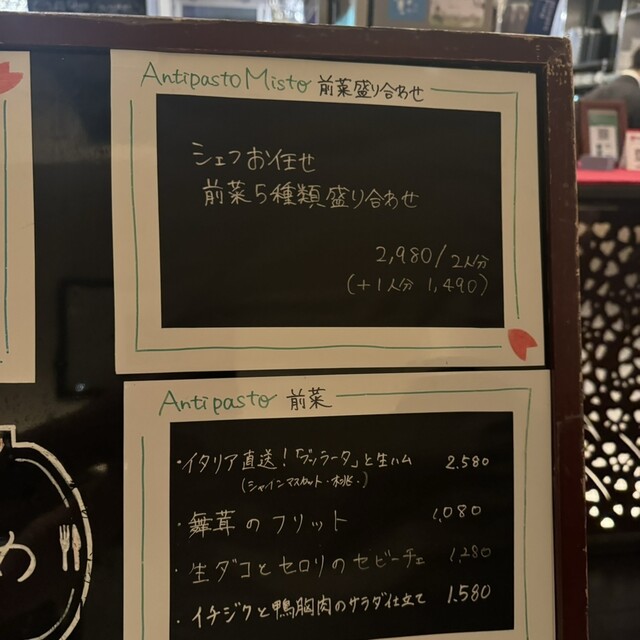 Antipasto Misto 前菜盛り合わせ
シェフお任せ
前菜5種類盛り合わせ
2,980/2人分
(+1人分 1,490)
Antipasto 前菜
・イタリア直送!「ブッラータ」と生ハム 2.580
(シャインマスカット・桃)
・舞茸のフリット 1,080
・生ダコとセロリのセビーチェ 1,280
・イチジクと鴨胸肉のサラダ仕立て 1.580
め